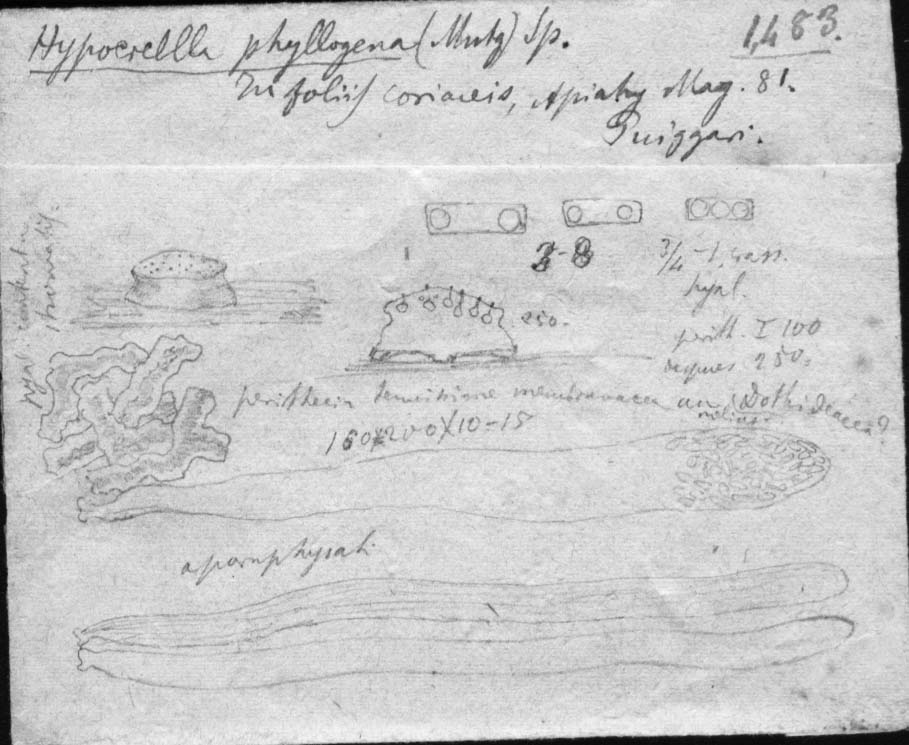 Hypocrella phyllogena (Mntg) Sp.
1,483.
In foliis coriaceis, Apiahy Mag. 81.
Puiggari.
3-8
3/4 - 1, crass.
hyal.
250.
perith. I 100
250.
perithecia tenuissime membranacea an Dothideacea?
melius
150×200×10-15
aparaphysati